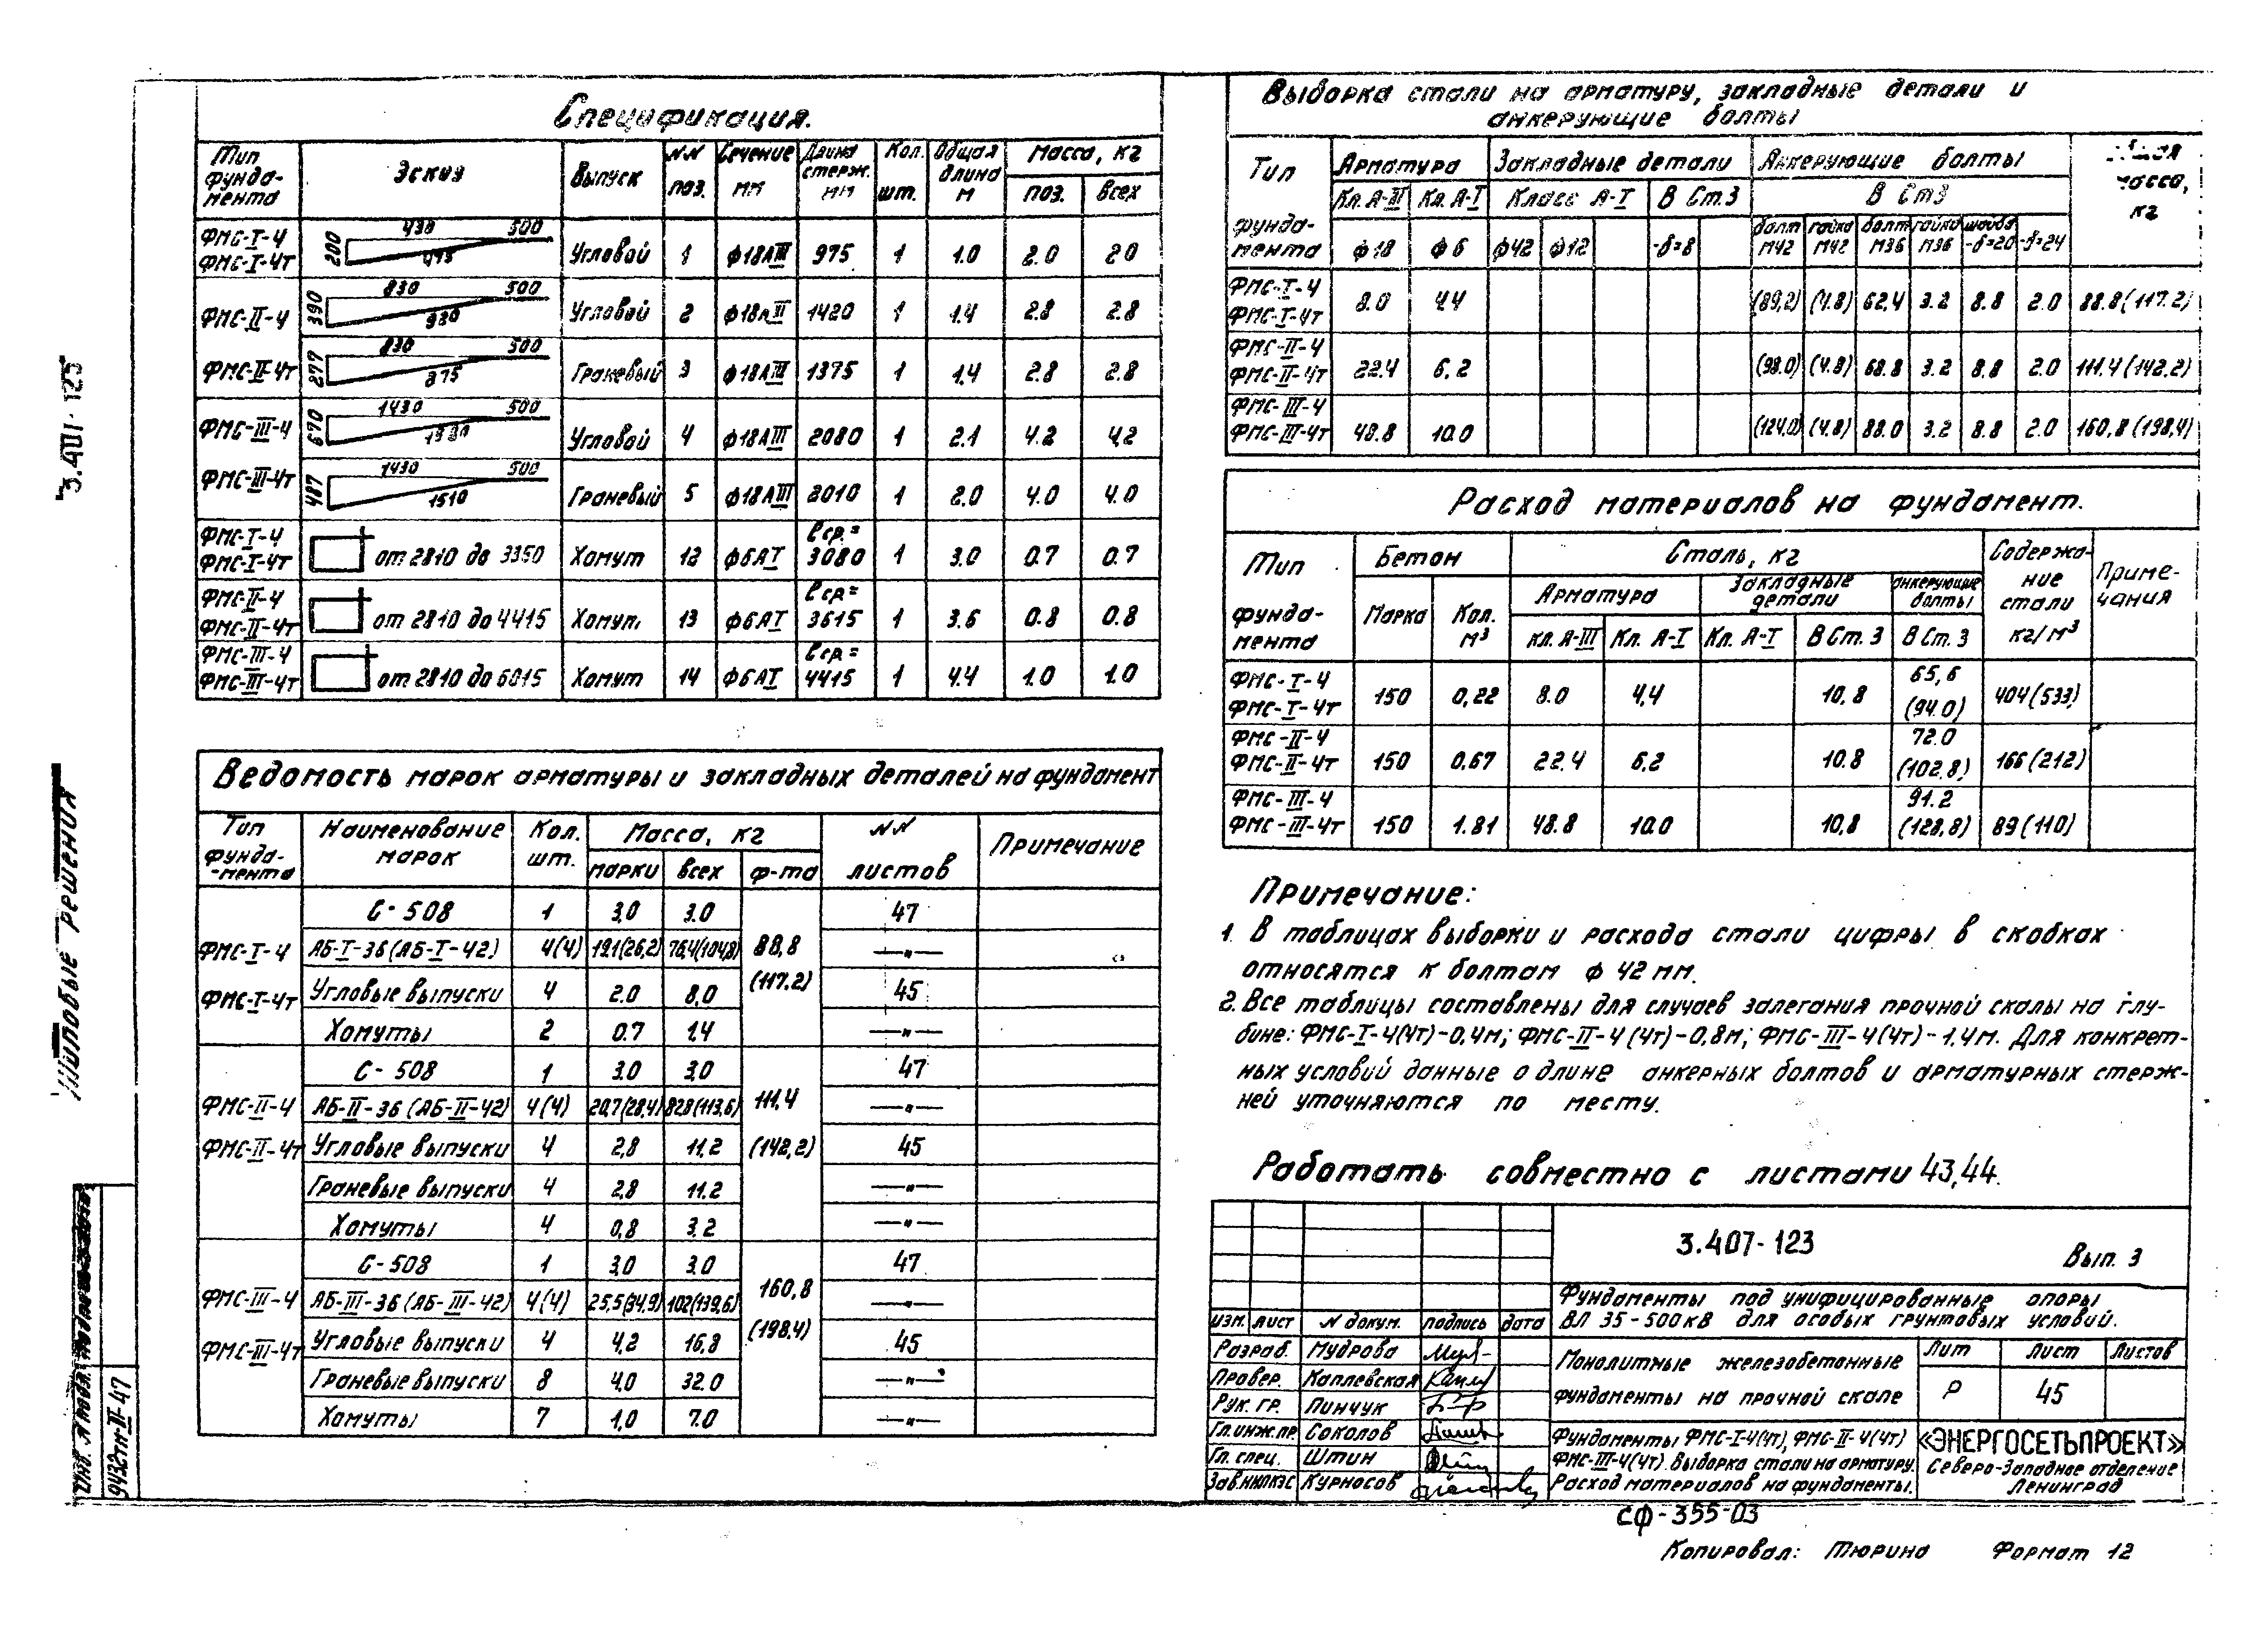 Спецификация.
Тип фунда-мента | Эскиз | Выпуск | NN поз. | Сечение мм | Длина стерж. мм | Кол. шт. | Общая длина м | Масса, кг поз. | всех
ФМС-I-4 ФМС-I-4т | 200 430 500 475 | Угловой | 1 | ф18АIII | 975 | 1 | 1.0 | 2.0 | 2.0
ФМС-II-4 | 390 830 500 920 | Угловой | 2 | ф18АIII | 1420 | 1 | 1.4 | 2.8 | 2.8
ФМС-II-4т | 277 830 500 875 | Граневый | 3 | ф18АIII | 1375 | 1 | 1.4 | 2.8 | 2.8
ФМС-III-4 | 670 1430 500 1580 | Угловой | 4 | ф18АIII | 2080 | 1 | 2.1 | 4.2 | 4.2
ФМС-III-4т | 487 1430 500 1510 | Граневый | 5 | ф18АIII | 2010 | 1 | 2.0 | 4.0 | 4.0
ФМС-I-4 ФМС-I-4т | от 2810 до 3350 | Хомут | 12 | ф6АI | ℓср= 3080 | 1 | 3.0 | 0.7 | 0.7
ФМС-II-4 ФМС-II-4т | от 2810 до 4415 | Хомут | 13 | ф6АI | ℓср= 3615 | 1 | 3.6 | 0.8 | 0.8
ФМС-III-4 ФМС-III-4т | от 2810 до 6015 | Хомут | 14 | ф6АI | ℓср= 4415 | 1 | 4.4 | 1.0 | 1.0
Ведомость марок арматуры и закладных деталей на фундамент
Тип фунда-мента | Наименование марок | Кол. шт. | Масса, кг марки | всех | ф-та | NN листов | Примечание
ФМС-I-4 ФМС-I-4т | С-508 | 1 | 3,0 | 3.0 | 88,8 (117.2) | 47
АБ-I-36 (АБ-I-42) | 4(4) | 19.1(26,2) | 76,4(104,8) | —"—
Угловые выпуски | 4 | 2.0 | 8,0 | 45
Хомуты | 2 | 0.7 | 1,4 | —"—
ФМС-II-4 ФМС-II-4т | С-508 | 1 | 3.0 | 3,0 | 111,4 (142,2) | 47
АБ-II-36 (АБ-II-42) | 4(4) | 20,7(28,4) | 82.8(113,6) | —"—
Угловые выпуски | 4 | 2,8 | 11,2 | 45
Граневые выпуски | 4 | 2,8 | 11.2 | —"—
Хомуты | 4 | 0,8 | 3,2 | —"—
ФМС-III-4 ФМС-III-4т | С-508 | 1 | 3,0 | 3.0 | 160,8 (198,4) | 47
АБ-III-36 (АБ-III-42) | 4(4) | 25,5(34,9) | 102(139,6) | —"—
Угловые выпуски | 4 | 4,2 | 16,8 | 45
Граневые выпуски | 8 | 4,0 | 32.0 | —"—
Хомуты | 7 | 1,0 | 7.0 | —"—
Выборка стали на арматуру, закладные детали и
анкерующие болты
Тип фунда-мента | Арматура | Закладные детали | Анкерующие болты | масса, кг
Кл. А-III | Кл. А-I | Класс А-I | В Ст.3 | В Ст3
ф18 | ф6 | ф42 | ф12 | -δ=8 | болт М42 | гайка М42 | болт М36 | гайка М36 | шайба -δ=20 | -δ=24
ФМС-I-4 ФМС-I-4т | 8.0 | 4.4 | (89,2) | (4.8) | 62,4 | 3.2 | 8.8 | 2.0 | 88.8(117.2)
ФМС-II-4 ФМС-II-4т | 22.4 | 6,2 | (98.0) | (4.8) | 68.8 | 3.2 | 8.8 | 2.0 | 111.4(142.2)
ФМС-III-4 ФМС-III-4т | 48.8 | 10.0 | (124,0) | (4.8) | 88.0 | 3.2 | 8.8 | 2.0 | 160,8(198,4)
Расход материалов на фундамент.
Тип фунда-мента | Бетон | Сталь, кг | Содержа-ние стали кг/м³ | Приме-чания
Марка | Кол. м³ | Арматура | Закладные детали | анкерующие болты
кл. А-III | Кл. А-I | Кл. А-I | В Ст. 3 | В Ст. 3
ФМС-I-4 ФМС-I-4т | 150 | 0,22 | 8.0 | 4,4 | 10,8 | 65,6 (94.0) | 404(533)
ФМС-II-4 ФМС-II-4т | 150 | 0.67 | 22.4 | 6,2 | 10.8 | 72.0 (102,8) | 166(212)
ФМС-III-4 ФМС-III-4т | 150 | 1.81 | 48.8 | 10.0 | 10,8 | 91.2 (128,8) | 89(110)
Примечание:
1. В таблицах выборки и расхода стали цифры в скобках
относятся к болтам ф 42 мм.
2. Все таблицы составлены для случаев залегания прочной скалы на глу-
бине: ФМС-I-4(4т)-0,4м; ФМС-II-4(4т)-0,8м; ФМС-III-4(4т)-1.4м. Для конкрет-
ных условий данные о длине анкерных болтов и арматурных стерж-
ней уточняются по месту.
Работать совместно с листами 43,44.
3.407-123 Вып. 3
Фундаменты под унифицированные опоры
ВЛ 35-500кВ для особых грунтовых условий.
изм. | лист | N докум. | подпись | дата
Разраб. Мудрова
Провер. Каплевская
Рук. гр. Пинчук
Гл.инж.пр. Соколов
Гл. спец. Штин
Зав.НИЛКЭС Курносов
Монолитные железобетонные
фундаменты на прочной скале
Лит | Лист | Листов
Р | 45
Фундаменты ФМС-I-4(4т), ФМС-II-4(4т)
ФМС-III-4(4т). Выборка стали на арматуру.
Расход материалов на фундаменты.
«ЭНЕРГОСЕТЬПРОЕКТ»
Северо-Западное отделение
Ленинград
СФ-355-03
Копировал: Тюрина Формат 12
3.401-125
Типовые решения
Инв. N подл.
9432тм-II-47